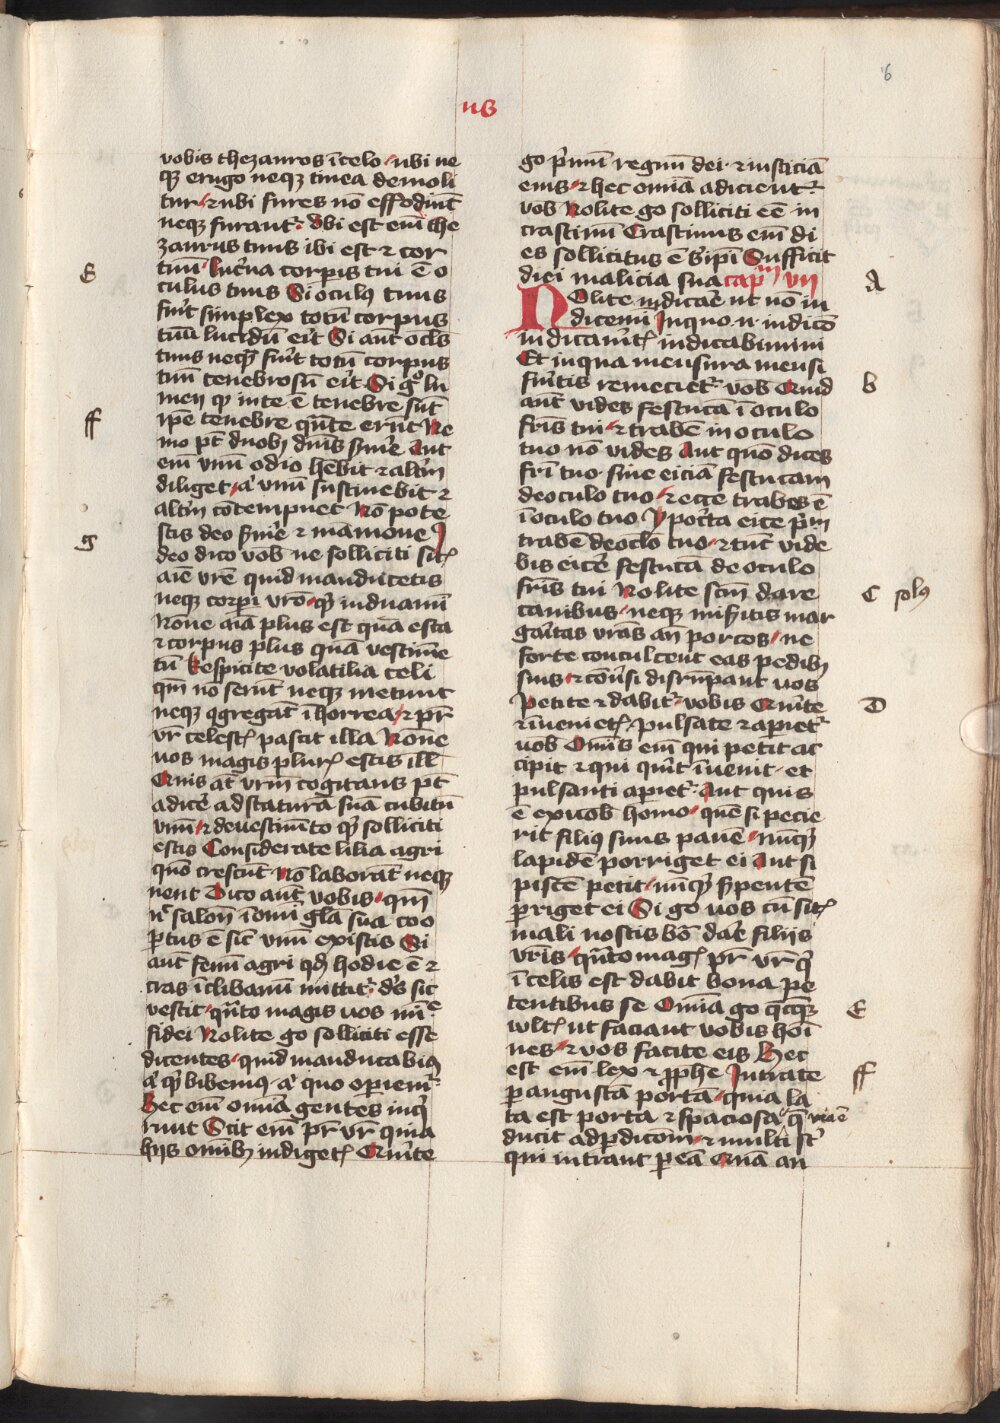 6
us
vobis thezauros ī celo ubi ne
qꝫ erugo neqꝫ tinea demoli
tur ⁊ ubi fures nō effodiūt
neqꝫ furant᷑ Ubi est em̄ the
zaurus tuus ibi est ⁊ cor
E
tuū Lucͥna corpis tui ē o
culus tuus Si oculꝰ tuus
fuīt simplex totū corpus
tuū lucidū eīt Si aut̄ ocl̄s
tuus neqͣ fuīt totū corpus
tuū tenebrosū eīt Si gͦ lu
men qꝫ in te ē tenebre sūt
ff
ip̄e tenebre qn̄te erūt Ne
mo pt̄ duobꝫ dn̄is ẜuīe Aut
em̄ vnū odio hēbit ⁊ altm̄
diliget a᷑ vnū sustinebit ⁊
altm̄ cōtempnet Nō pote
stis deo ẜuīe ⁊ mamone I
g
deo dico vob̄ ne solliciti sitꝭ
aīe vrē quid manducetis
neqꝫ corpi vr̄o qͦ induamī
Nōne aīa plus est quā esca
⁊ corpus plus quā vestime
tū Respicite volatilia celi
qm̄ nō serūt neqꝫ metunt
neqꝫ ꝯgregāt ī horrea ⁊ pr̄
vr̄ celestꝭ pascit illa Nōne
vos magis plurꝭ estis ill̄
Quis at̄ vrm̄ cogitans pt̄
adicͤ ad staturā suā cubitū
vnū ⁊ de vestimēto qͥd solliciti
estis Considerate lilia agri
quō crescūt Nō laborāt neqꝫ
nent Dico aut̄ vobis qm̄
nͨ salon̄ ī omī gl̄a sua coo
ꝑtus ē sic̄ vnū ex istis Si
aut̄ fenū agri qd̄ hodie ē ⁊
cras ī clibanū mittit᷑ ds̄ sic
vestit qn̄to magis uos mīͤ
fidei Nolite go solliciti esse
dicentes quid manducabimꝰ
a᷑ qͥd bibemꝰ a᷑ quo operiem᷑
Hec em̄ omīa gentes inqͥ
runt Scit em̄ pr̄ vr̄ quia
hijs omībꝫ indigetꝭ Querite
go pͥmū regnū dei ⁊ iusticiā
eius ⁊ hec omīa adicient᷑
vob̄ Nolite go solliciti eē in
crastinū Crastinus em̄ di
es sollicitus ē sͥ ip̄i Sufficit
diei malicia sua capᵐ vii
A
Nolite iudicāe ut nō iu
dicemī In quo n̄ iudicō
iudicauītꝭ iudicabimini
Et in qua mensura mensi
b
fuītis remeciet᷑ vob̄ Quid
aut̄ vides festucā ī oculo
fris̄ tui ⁊ trabē in oculo
tuo nō vides Aut quō dices
frī tuo sine eiciā festucam
de oculo tuo ⁊ ecce trabes ē
ī oculo tuo Ypocͥta eice pͥm
trabē de oclo tuo ⁊ tūc vide
bis eicͤe festucā de oculo
fris̄ tui Nolite scm̄ dare
C solꝰ
canibus neqꝫ miẜitis mar
gaītas vrās an̄ porcos ne
forte conculcent eas pedibꝫ
suis ⁊ cōuͥsi disrūpant uos
Petite ⁊ dabit᷑ vobis Quīte
D
⁊ īuenietꝭ pulsate ⁊ apiet᷑
uob̄ Omīs em̄ qui petit ac
cipit ⁊ qui quīt īuenit et
pulsanti apiet᷑ Aut quis
ē ex uob̄ homo quē si pecie
rit filiꝰ suus panē nūqͥd
lapidē porriget ei Aut si
piscē petit nūqͥd ẜpentē
ꝑriget ei Si go uos cū sitꝭ
mali nostis bō dāe filijs
vrīs qn̄to magꝭ pr̄ vr̄ qͥ
ī celis est dabit bona pe
tentibus se Omīa go qcūqꝫ
E
wltꝭ ut faciant vobis hoī
nes ⁊ vos facite eis Hec
est em̄ lex ⁊ ꝓphe Intrate
ff
ꝑ angustā portā quia la
ta est porta ⁊ spaciosa qͤ via ē
ducit ad ꝑdicōm ⁊ multi st̄
qui intrant ꝑ eā Quā an